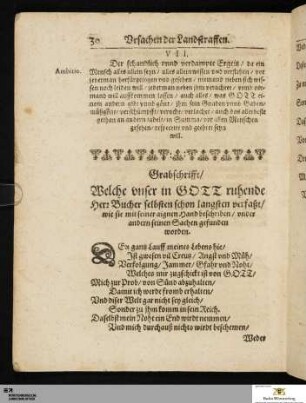 30 Vrsachen der Landstraffen.
VII.
Ambitio.
Der schandtlich vnnd verdampte Ergeitz / da ein
Mensch alles allein seyn / alles allein wissen vnd verstehen / vor
jederman herfür gezogen vnd gesehen / niemand neben sich wis-
sen noch leiden will / jederman neben jhm verachten / vnnd nie-
mand will auffkommen lassen / auch alles / was GOTT ei-
nem andern gibt vnnd gönt / jhm sein Gnaden vnnd Gaben
vernichtet / vnd doch der allerbeste
gehen an andern tadelt / vor allen Menschen
gesehen / vnd geehrt seyn
will.
Grabschrifft /
Welche vnser in GOTT ruhende
Herr Bucher selbsten schon langsten verfaßt /
wie sie mit seiner aignen Hand beschriben / vnder
andern seinen Sachen gefunden
worden.
DEn gantz Lauff meines Lebens hie /
Ist gwesen vil Creutz / Angst vnd Müh /
Verfolgung / Jammer / Gfahr vnd Noht /
Welches mir zugschickt ist von GOTT /
Mich zur Prob / von Sünd abzuhalten /
Damit ich werde fromb erhalten /
Vnd diser Welt gar nicht sey gleich /
Sonder zu jhm komm in sein Reich.
Daselbst mein Noht ein End wirdt nemmen /
Vnd mich durchauß nichts wirdt beschemen /
Weder